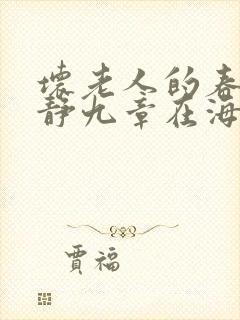 壞老人的春
靜九章在海
賈福